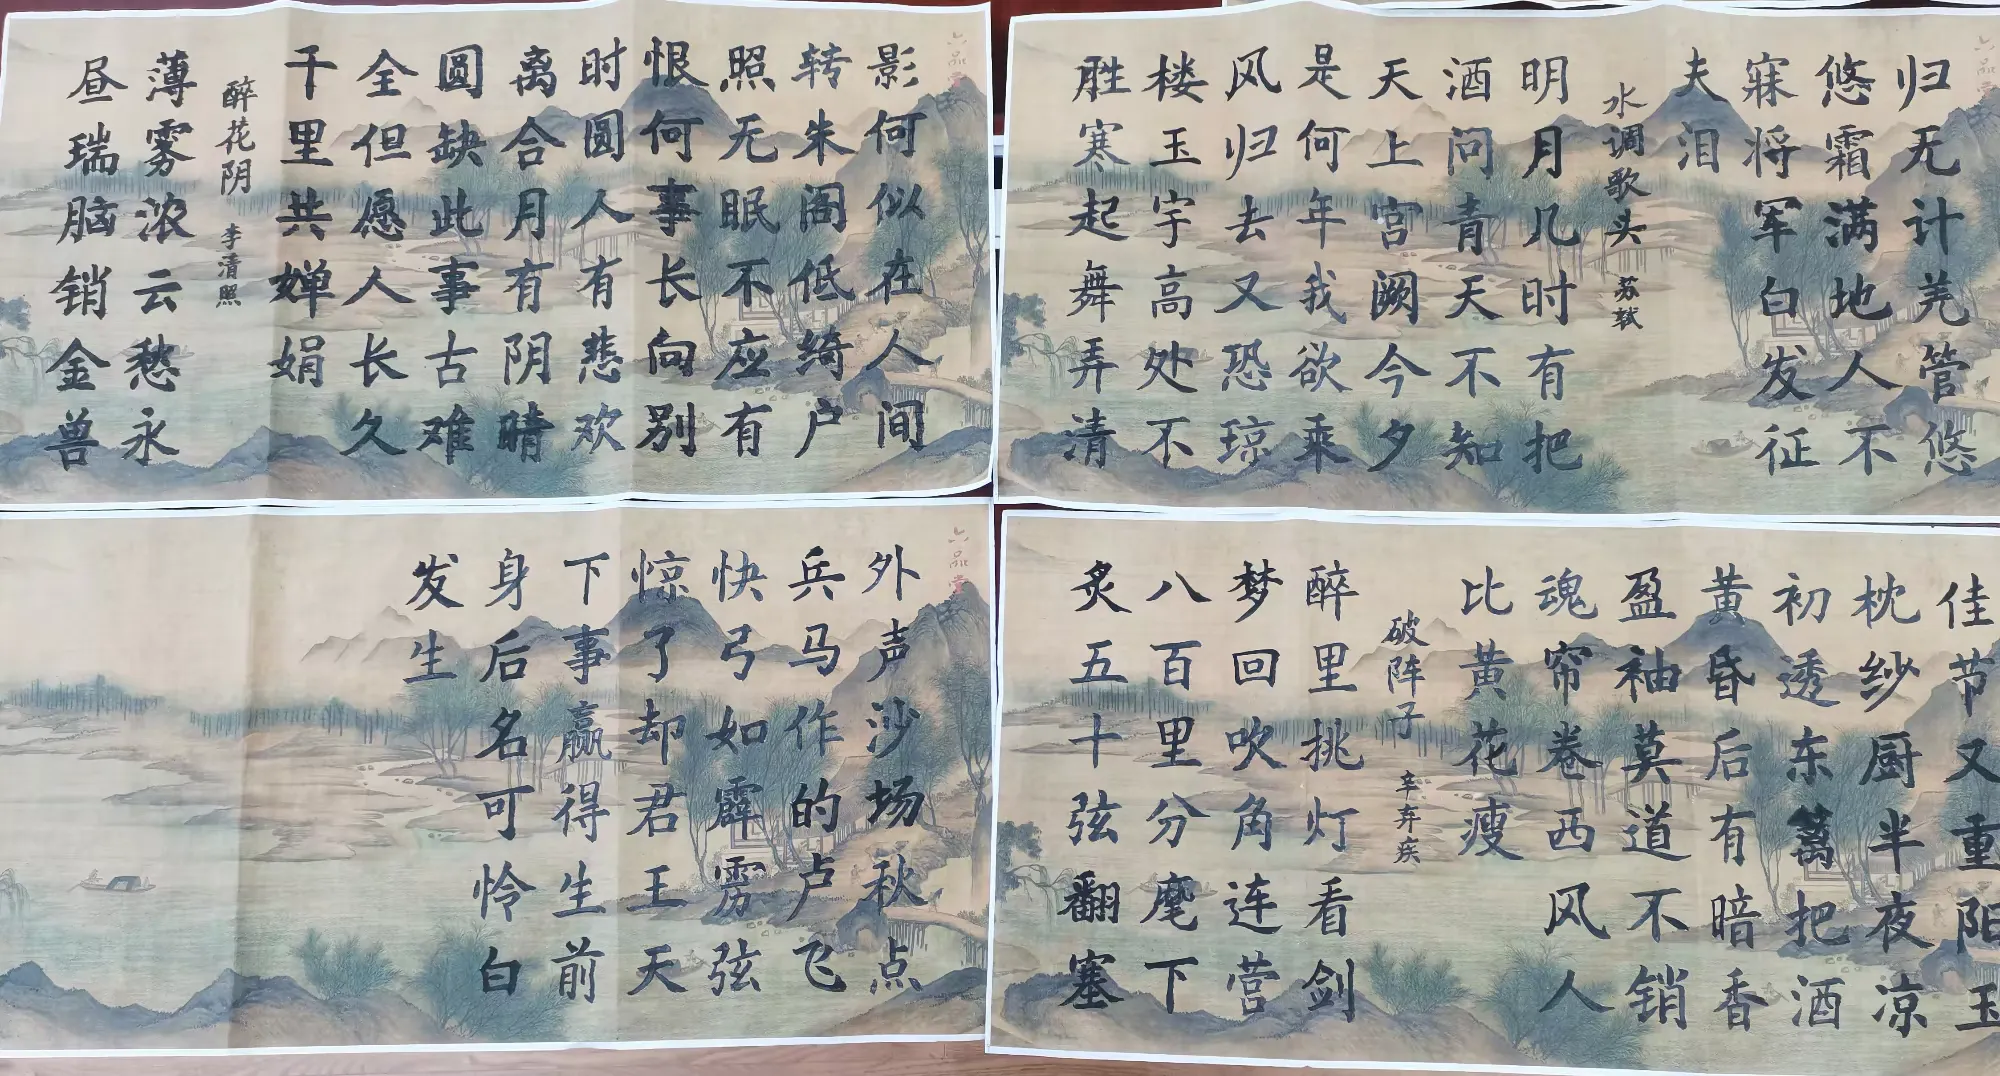 归无计羌管悠
悠霜满地人不
寐将军白发征
夫泪
水调歌头 苏轼
明月几时有把
酒问青天不知
天上宫阙今夕
是何年我欲乘
风归去又恐琼
楼玉宇高处不
胜寒起舞弄清
影何似在人间
转朱阁低绮户
照无眠不应有
恨何事长向别
时圆人有悲欢
离合月有阴晴
圆缺此事古难
全但愿人长久
千里共婵娟
醉花阴 李清照
薄雾浓云愁永
昼瑞脑销金兽
佳节又重阳玉
枕纱厨半夜凉
初透东篱把酒
黄昏后有暗香
盈袖莫道不销
魂帘卷西风人
比黄花瘦
破阵子 辛弃疾
醉里挑灯看剑
梦回吹角连营
八百里分麾下
炙五十弦翻塞
外声沙场秋点
兵马作的卢飞
快弓如霹雳弦
惊了却君王天
下事赢得生前
身后名可怜白
发生